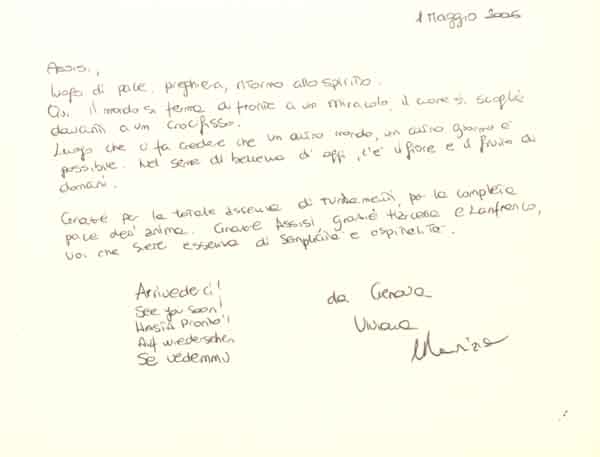 1 Maggio 2005
Assisi,
luogo di pace, preghiera, ritorno allo spirito.
Qui il mondo si ferma di fronte a un miracolo, il cuore si scioglie
davanti a un crocifisso.
Luogo che ci fa credere che un altro mondo, un altro giorno è
possibile. Nel seme di bellezza di oggi, c'è il fiore e il frutto di
domani.
Grazie per la totale assenza di turbamenti, per la completa
pace dell'anima. Grazie Assisi, grazie Tiziana e Lanfranco,
voi che siete essenza di semplicità e ospitalità.
Arrivederci!
See you soon!
Hasta Pronto!
Auf wiedersehen
Se vedemmu
da Genova
Viviana
Marizia